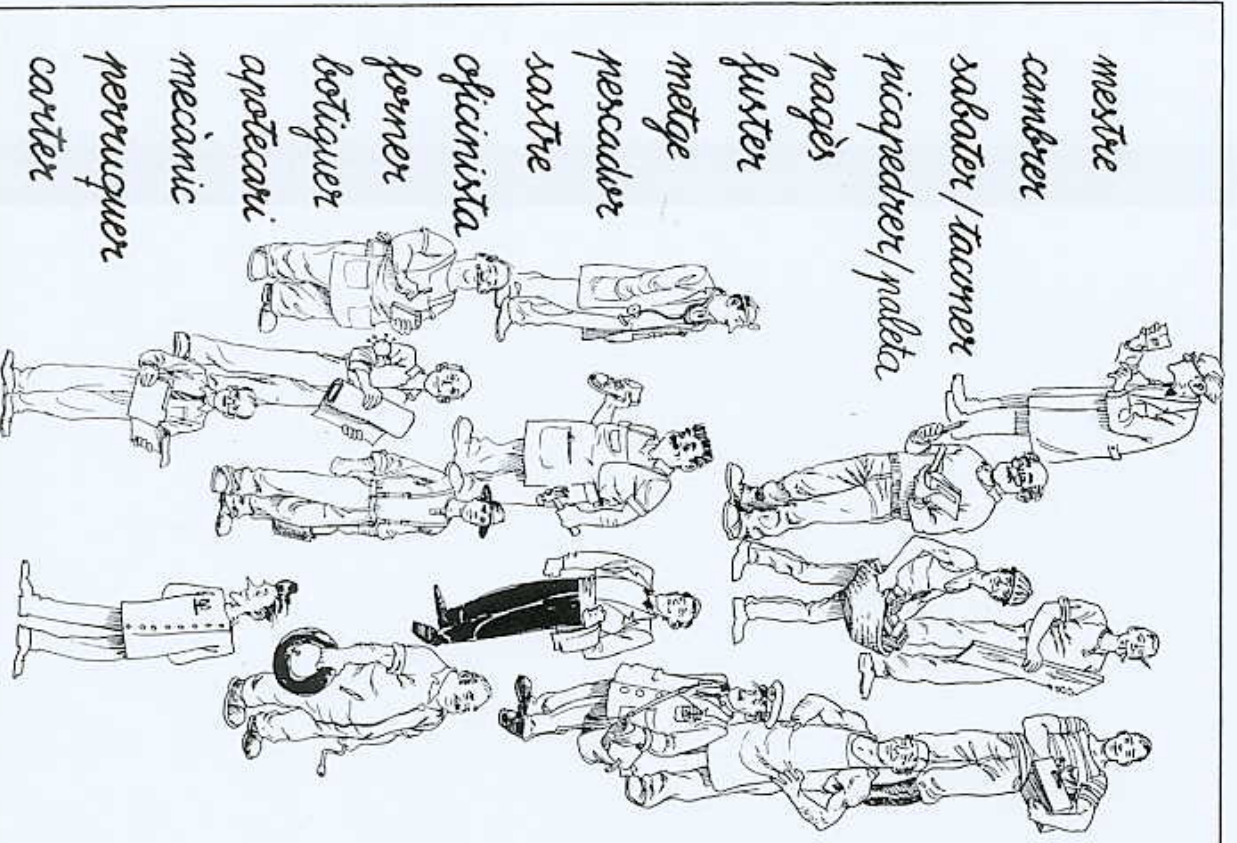 mestre
cambrer
sabater/taconer
picapedrer/paleta
pagès
fuster
metge
pescador
sastre
oficinista
forner
botiguer
apotecari
mecànic
perruquer
carter